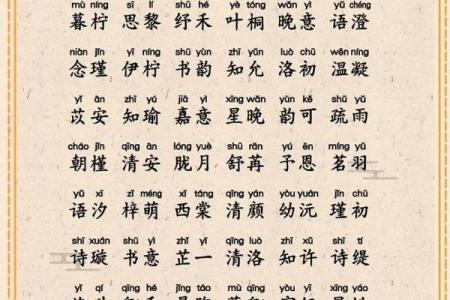 mù níng sī lí shū hé yè tóng wǎn yì yǔ chéng
暮柠 思黎 纾禾 叶桐 晚意 语澄
niàn jǐn yī níng shū yùn zhī yǔn luò chū wēn níng
念瑾 伊柠 书韵 知允 洛初 温凝
yǐ ān zhī yú jiā yì xīng wǎn yùn kě shū yǔ
苡安 知瑜 嘉意 星晚 韵可 疏雨
cháo jǐn qīng ān lóng yuè shū rǎn yú ēn míng yǔ
朝槿 清安 胧月 舒苒 予恩 茗羽
yǔ xī zǐ méng xī táng qīng yán yòu yuán jǐn chū
语汐 梓萌 西棠 清颜 幼沅 瑾初
shī xuán shū yì zhǐ yī qīng luò zhī xǔ shī tí
诗璇 书意 芷一 清洛 知许 诗缇